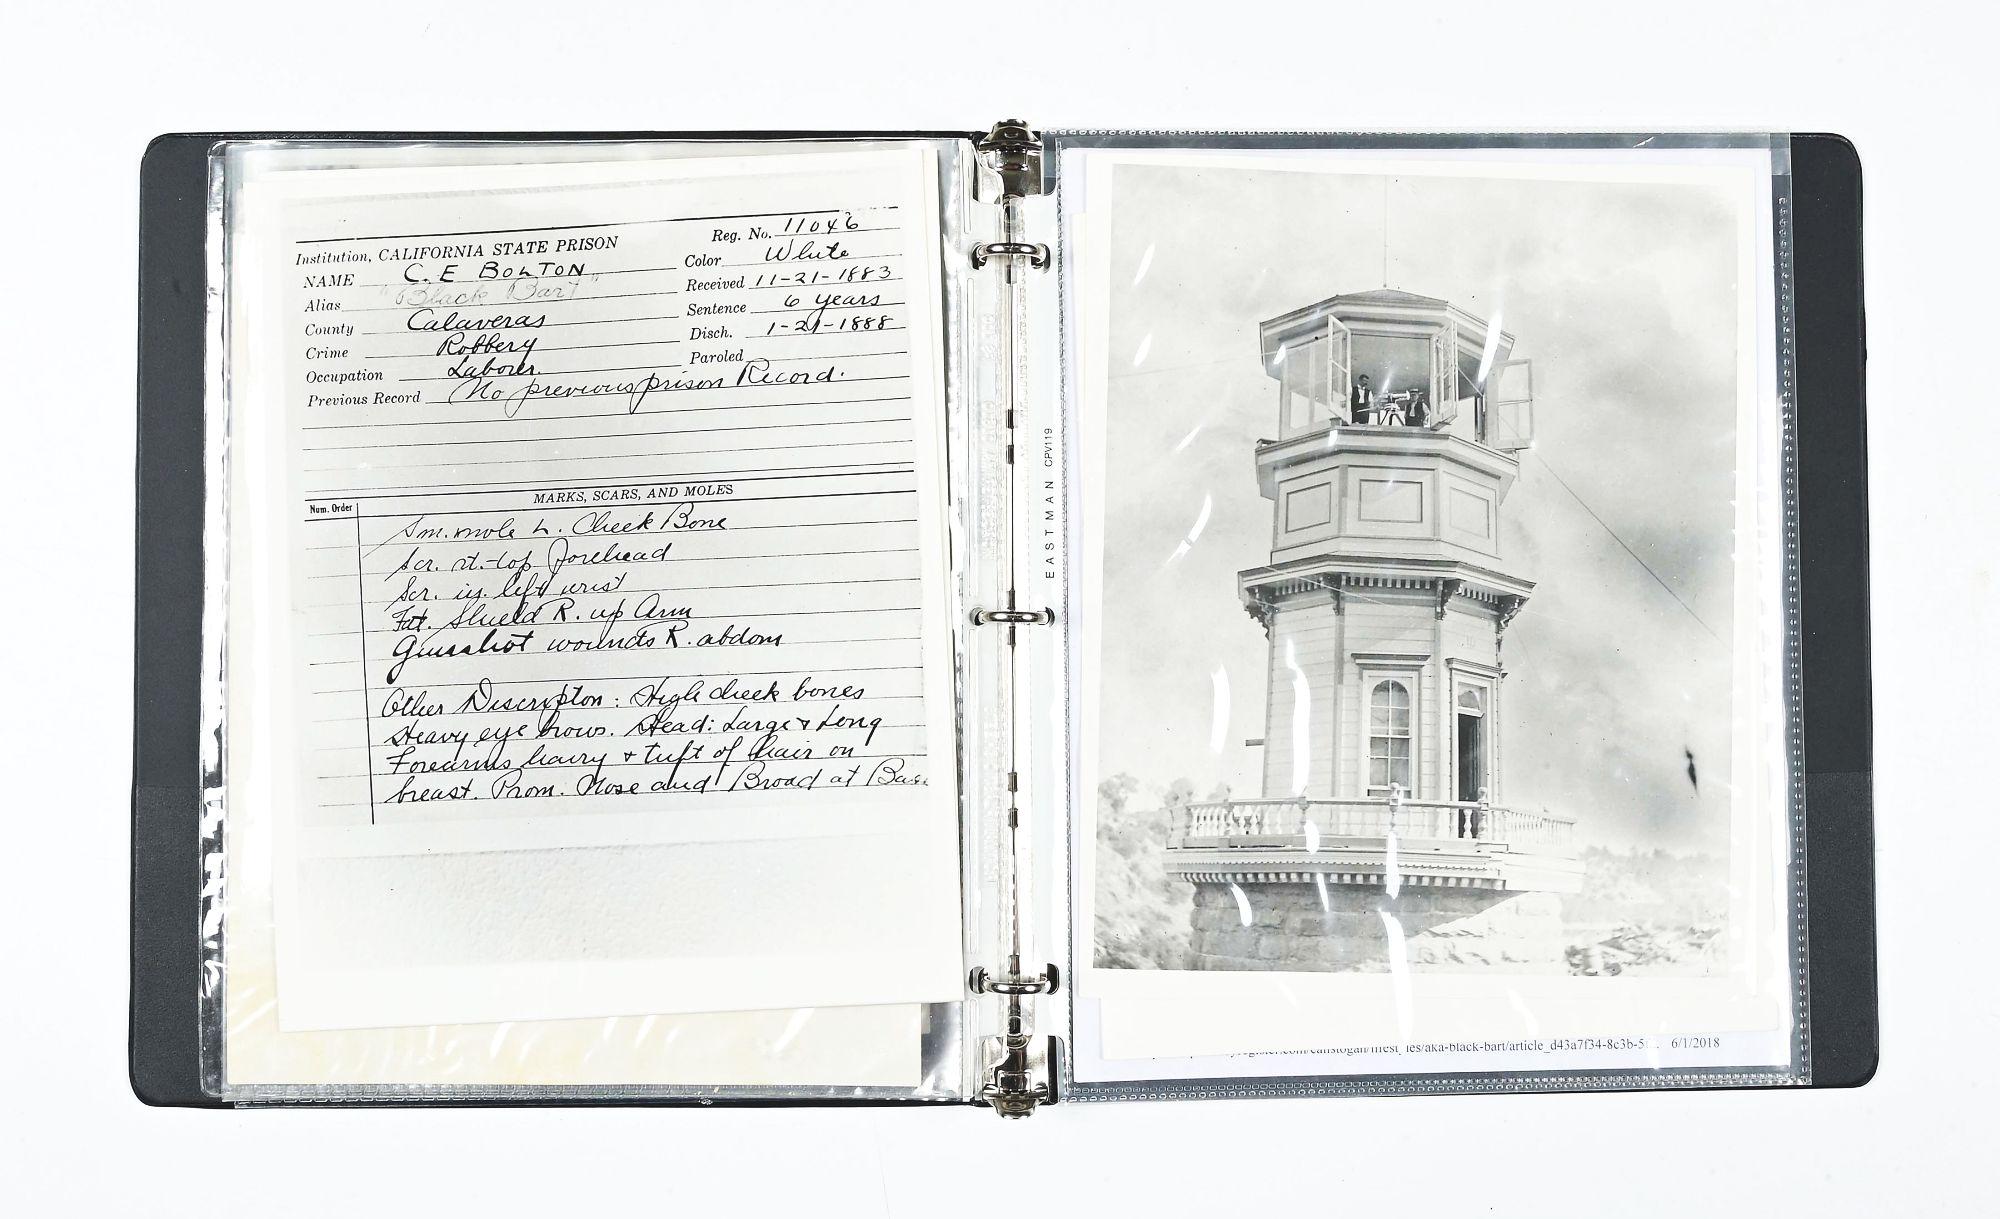 Institution, CALIFORNIA STATE PRISON
Reg. No. 11046
NAME C. E BOLTON
Color White
Alias "Black Bart"
Received 11-21-1883
County Calaveras
Sentence 6 years
Crime Robbery
Disch. 1-21-1888
Occupation Laborer.
Paroled
Previous Record No previous prison Record.
MARKS, SCARS, AND MOLES
Num. Order
Sm. mole L. Cheek Bone
Scr. rt.-top forehead
Scr. in. left wrist
Tat. Shield R. up Arm
Gunshot wounds R. abdom
Other Descripton: High cheek bones
Heavy eye brows. Head: Large & Long
Forearms hairy & tuft of hair on
breast. Prom. Nose and Broad at Base
EASTMAN CPV119
/aka-black-bart/article_d43a7f34-8c3b-5f... 6/1/2018